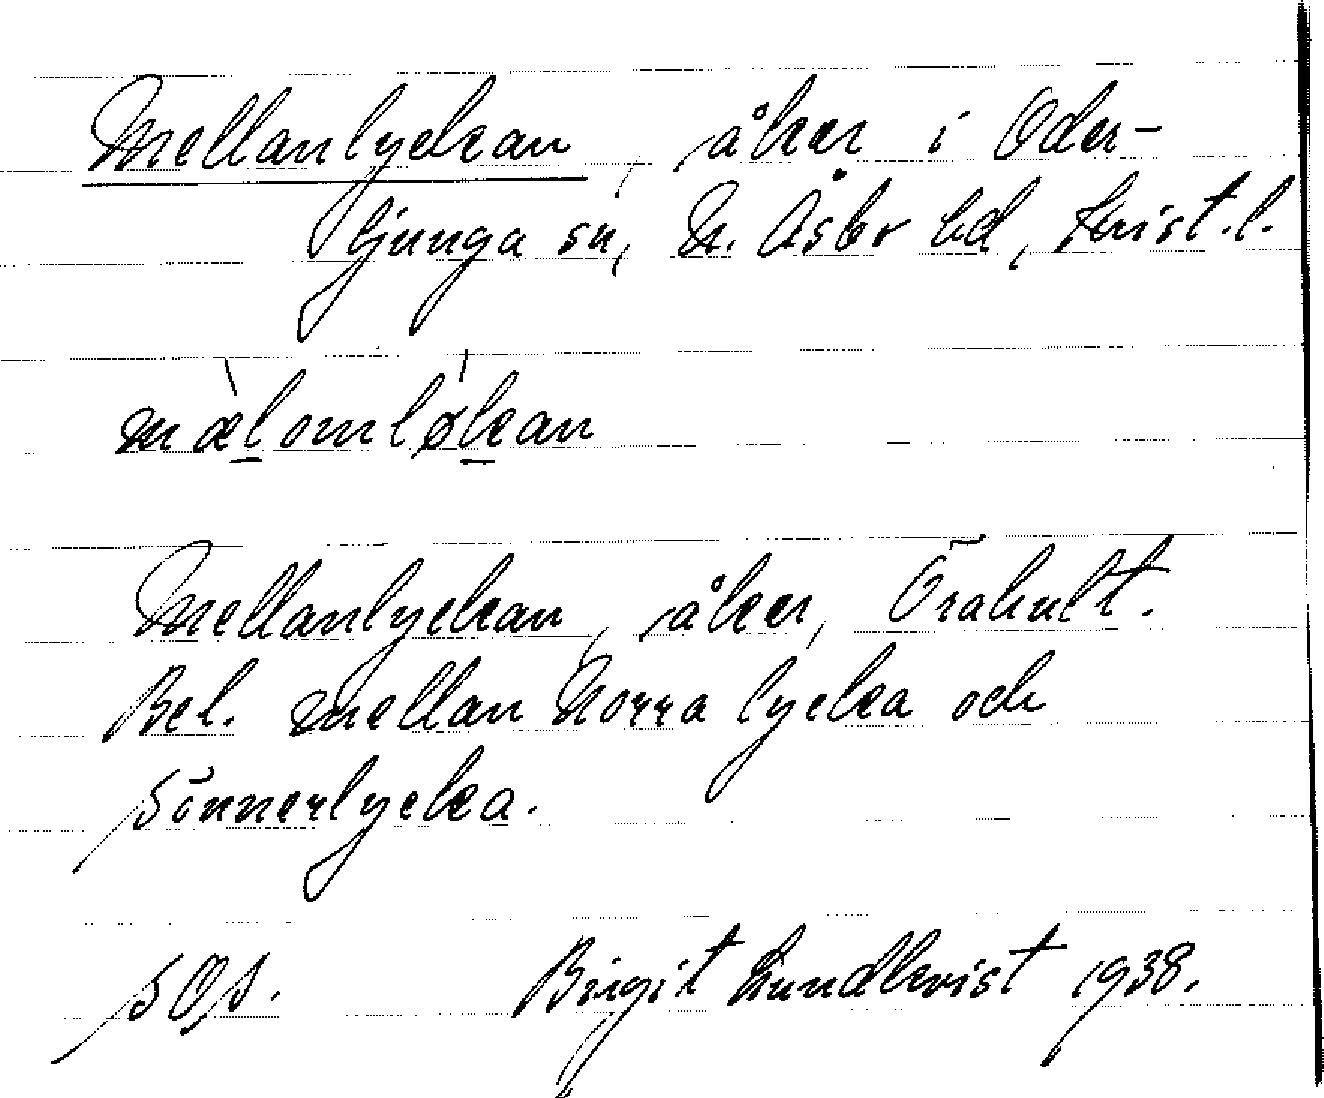 Mellanlyckan, åker i Oder-
ljunga sn, N. Åsbo hd, Krist. l.
mæl̲omløk̲an
Mellanlyckan, åker, Örahult.
Bel. mellan Norra lycka och
Sönnerlycka.
SOA. Birgit Lundkvist 1938.